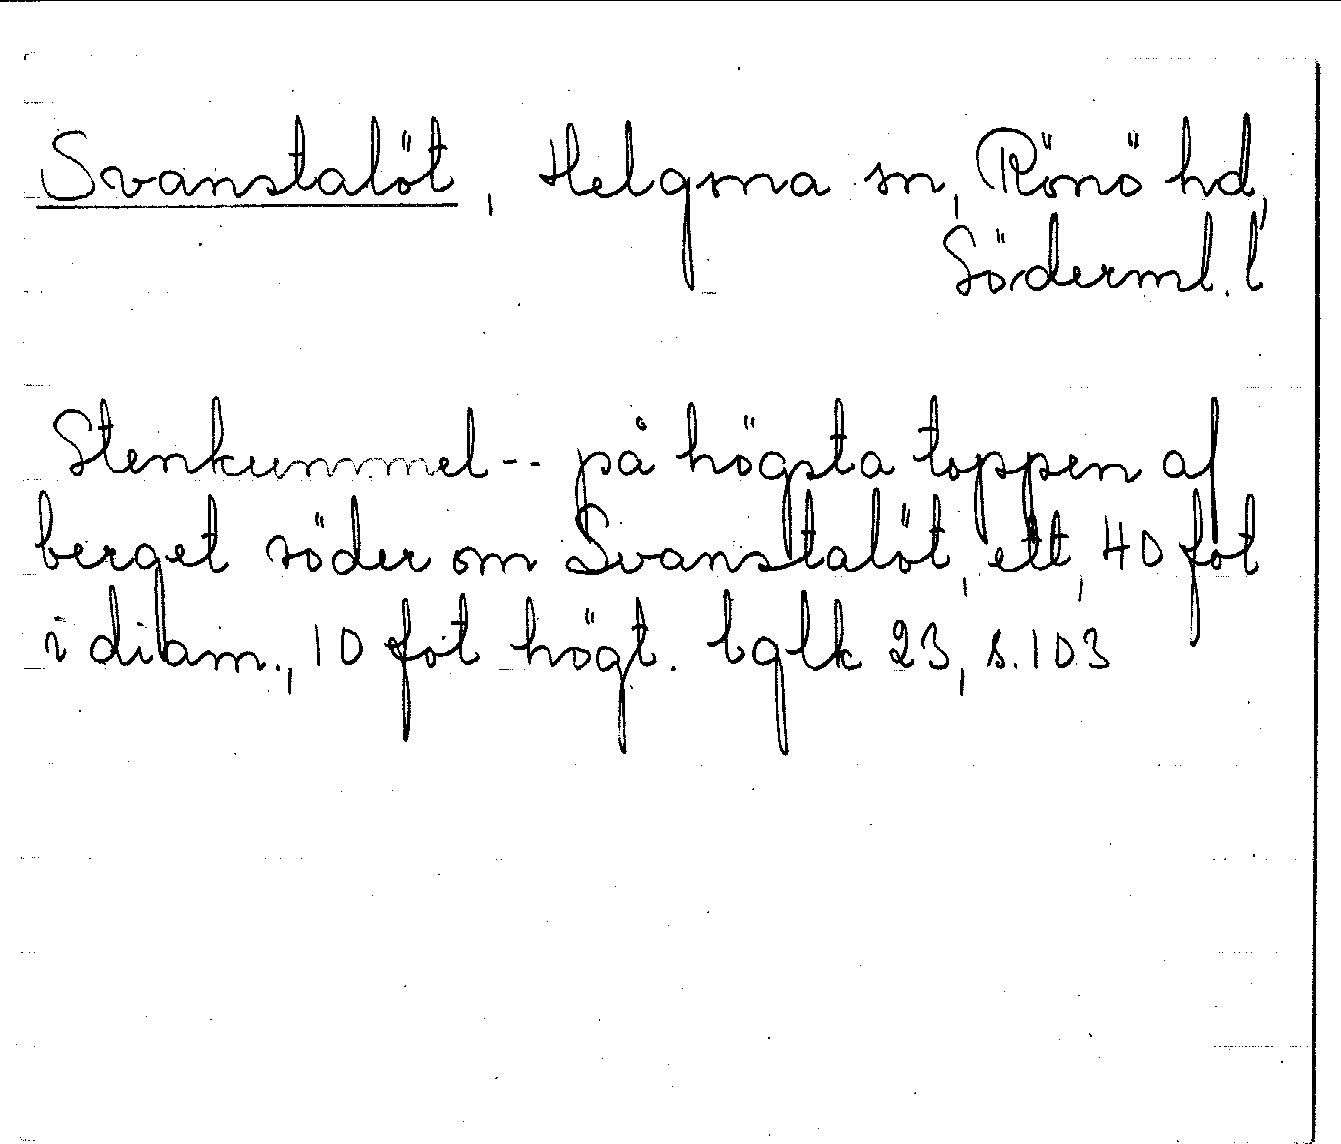 Svanstalöt, Helgona sn, Rönö hd,
Söderml. l
Stenkummel -- på högsta toppen af
berget söder om Svanstalöt, ett, 40 fot
i diam., 10 fot högt. bglk 23, s. 103